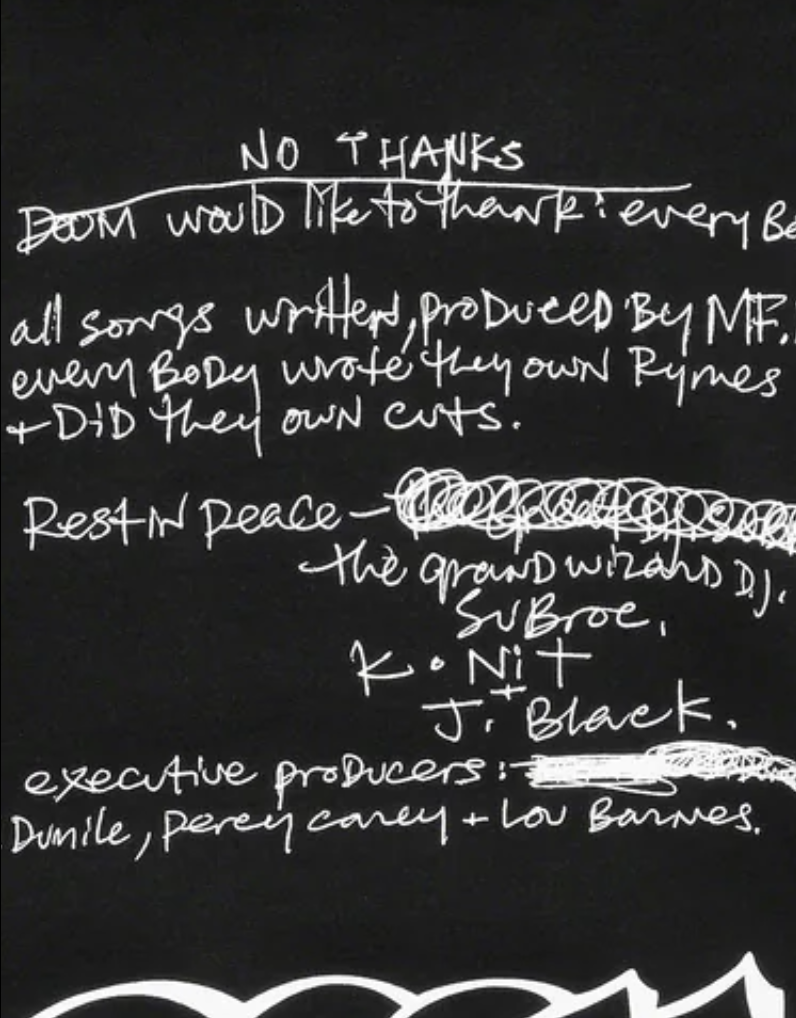 NO THANKS
DOOM would like to thank: every Bo
all songs written, produced By MF.
every Body wrote they own Rymes
+ DiD they own cuts.
Rest iN peace –
the grand wizard DJ.
SuBroc,
K • Nit
+
J. Black.
executive producers:
Dumile, percy carey + Lou Barnes.